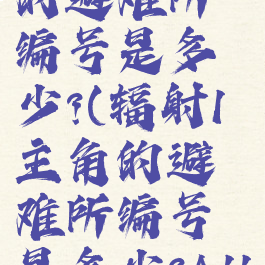 的避难所
编号是多
少?(辐射1
主角的避
难所编号
是多少?)